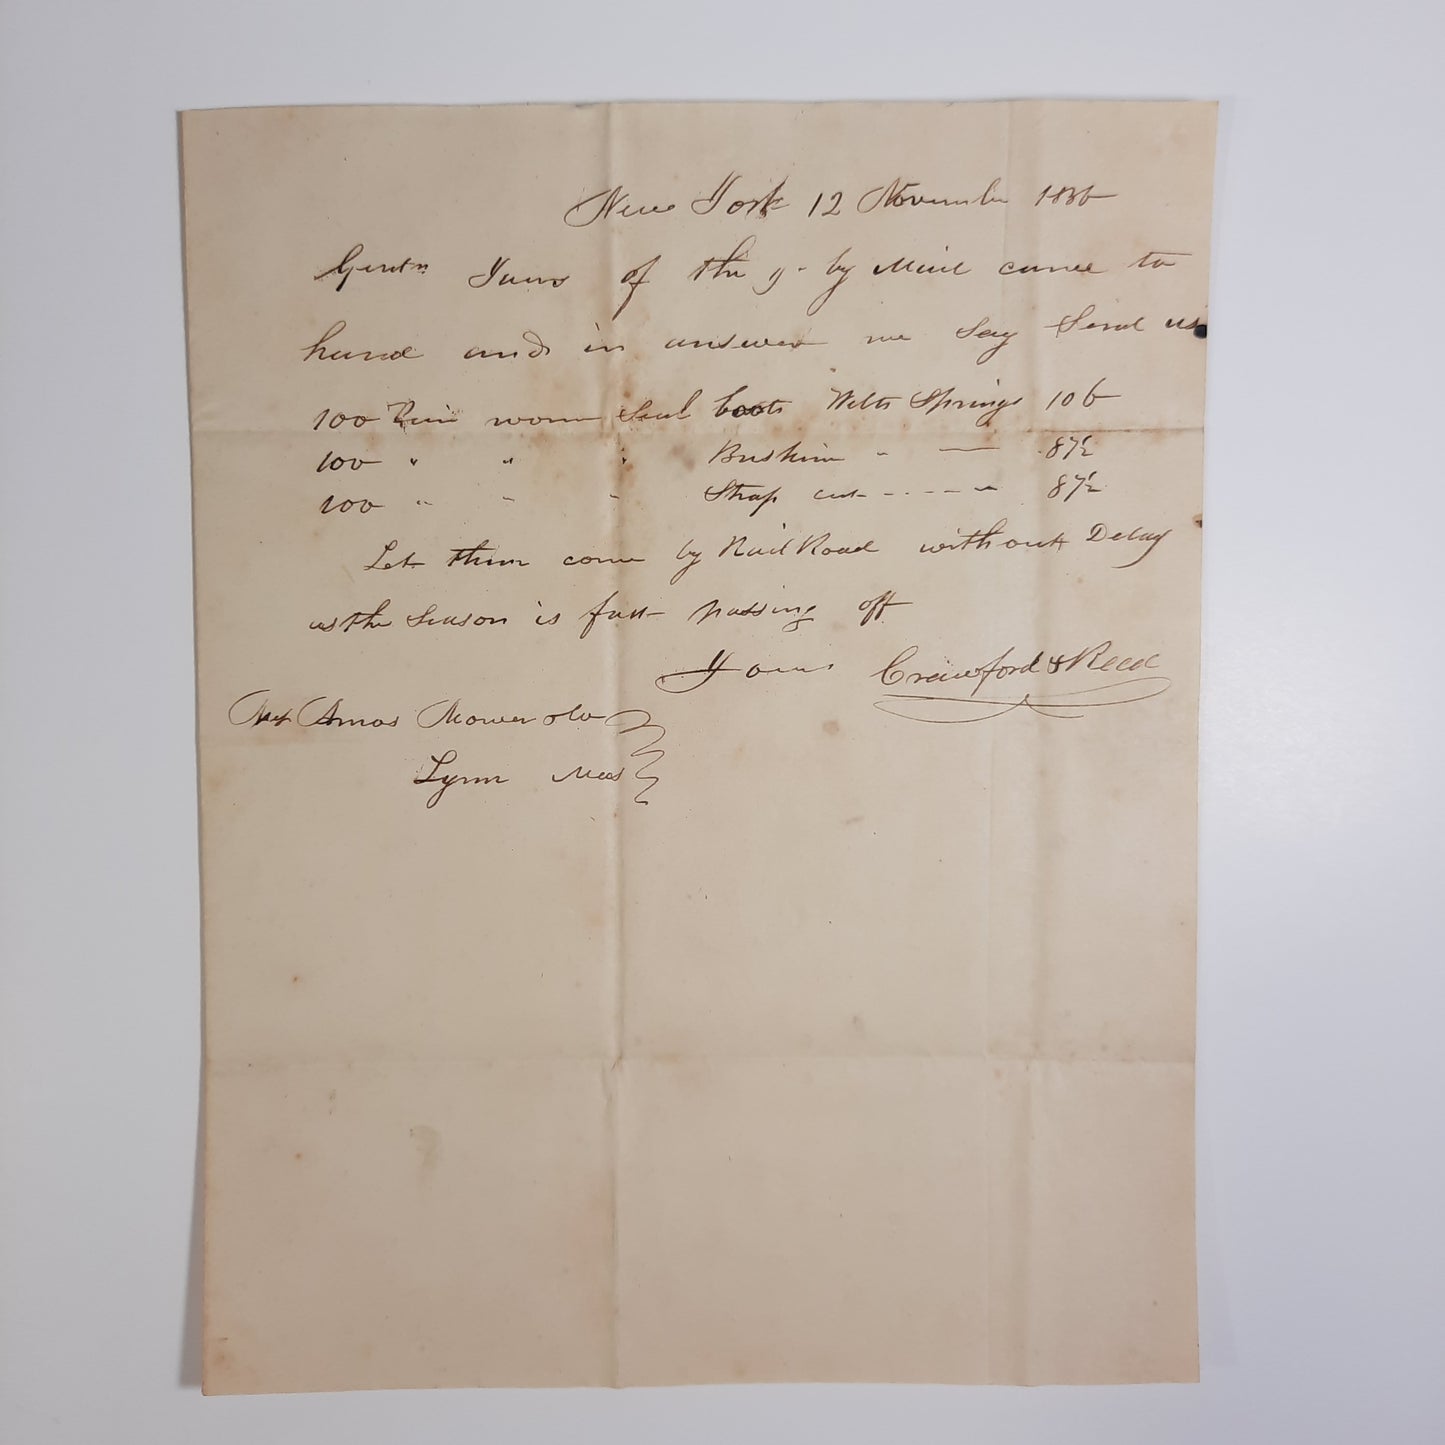 New York 12 November 1836
Gentn Yours of the 9- by Mail came to
hand and in answer we Say Send us
100 Pair women Seal boots Welts Springs 106
100 " " " Buskins " — 87½
100 " " " Strap cut - - - - " 87½
Let them come by Rail Road without Delay
as the Season is fast passing off
Yours Crawford & Reed
Amos Mower & Co
Lynn Mass